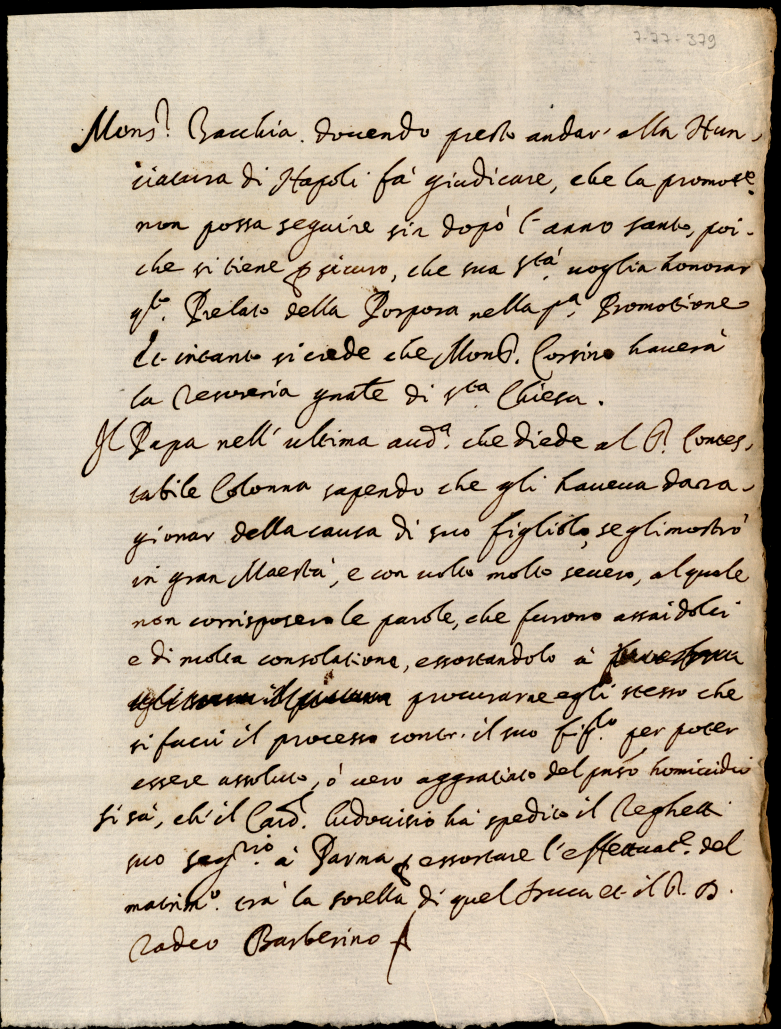 7-77-379
Mons.r Bacchia. douendo presto andar' alla Nun-
ciatura di Napoli fà giudicare, che la promot.e
non possa seguire sin dopò l'anno santo, poi-
che si tiene p sicuro, che sua S.tà uoglia honorar
q.to Prelato della Porpora nella p.a Promotione
Et intanto si crede che Mons.r Corsino hauerà
la Tesoreria gnale di s.ta Chiesa.
Il Papa nell' ultima aud.a che diede al S.r Contes-
tabile Colonna sapendo che gli haueua da ra-
gionar della causa di suo figliolo, se gli mostrò
in gran Maestà, e con uolto molto seuero, al quale
non corrisposero le parole, che furono assai dolci
e di molta consolatione, essortandolo à
procurarne egli stesso che
si facci il processo contr. il suo fig.lo per poter
essere assoluto, ò uero aggratiato del pnso homicidio
Si sà, ch'il Card. Ludouisio hà spedito il Reghetti
suo seg.rio à Parma p essortare l'effettuat.e del
matrim.o trà la sorella di quel Duca et il S. D.
Tadeo Barberino